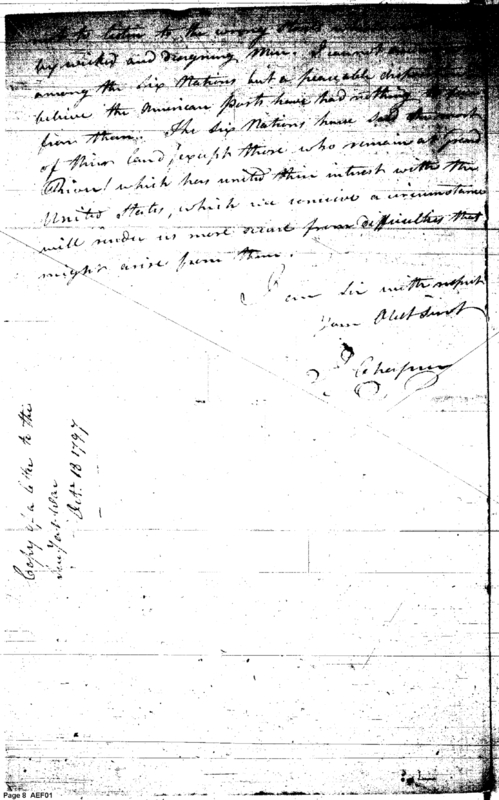 not to listen to the wrong
by wicked and designing Men. I cannot
among the Six Nations but a peaceable
believe the American Posts have had nothing to fear
from them. The Six Nations have sold the most
of their land, except those who remain at Grand
River, which has united their interest with the
United States, which we conceive a circumstance
will render us more secure from difficulties that
might arise from them.
I am Sir with respect
your Obdt Servt
Copy of a letter to the
Octr 18 1797
Page 8 AEF01